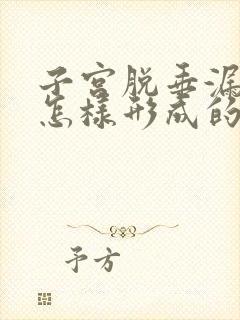 子宫脱垂漏
怎样形成的
予方